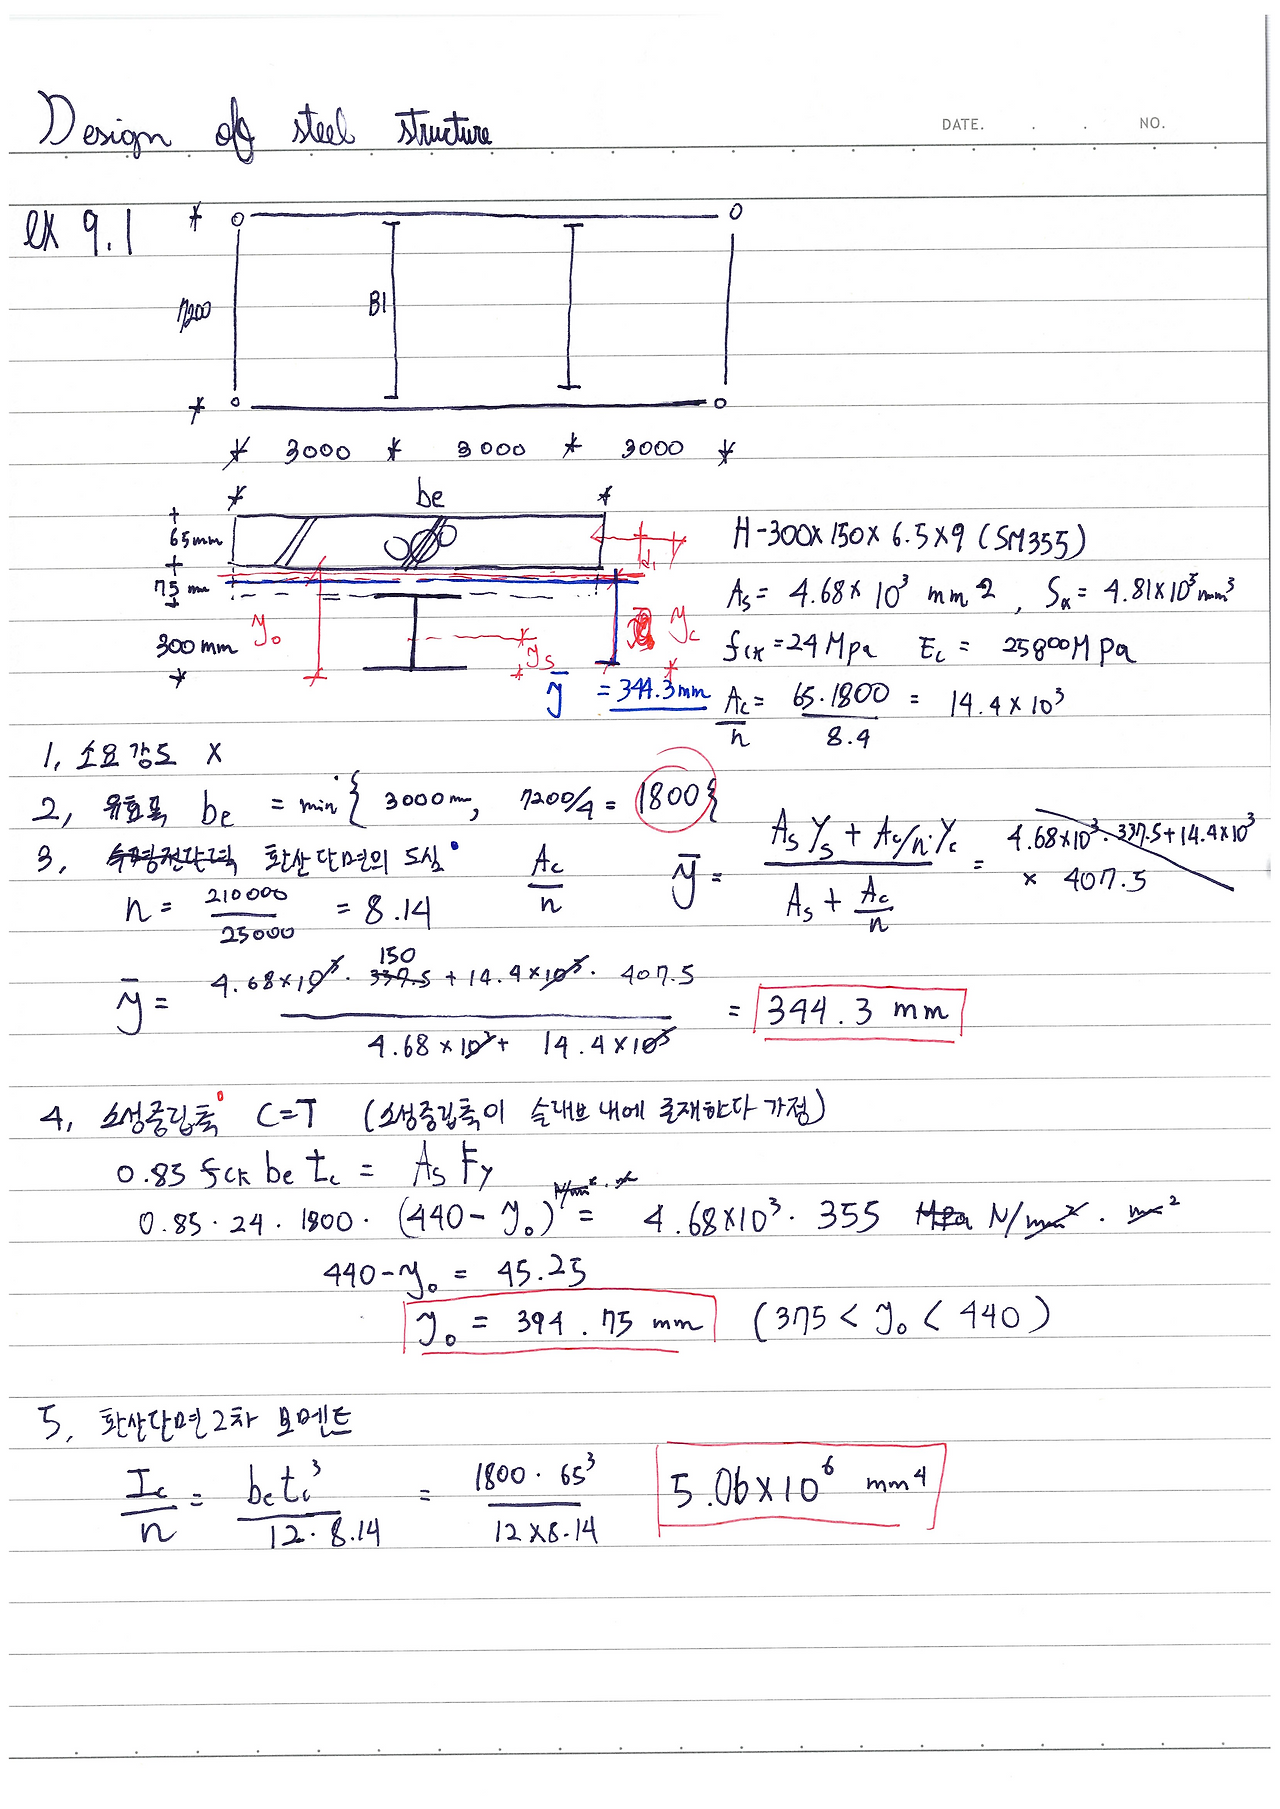 Design of steel structure
DATE. . . NO.
ex 9.1
7200
B1
3000 3000 3000
be
65mm
75 mm
300 mm
y₀
ys
d₁
yc
ȳ = 344.3mm
H-300×150×6.5×9 (SM355)
As = 4.68×10³ mm², Sx = 4.81×10⁵mm³
fck = 24Mpa Ec = 25800MPa
Ac/n = 65·1800/8.4 = 14.4×10³
1, 소요강도 X
2, 유효폭 be = min { 3000mm, 7200/4 = 1800 }
3, 수평전단력 환산단면의 도심
Ac/n
ȳ = (As ys + Ac/n·yc)/(As + Ac/n) = 4.68×10³·337.5+14.4×10³ × 407.5
n = 210000/25000 = 8.14
ȳ = (4.68×10³· 337.5 150 + 14.4×10³· 407.5)/(4.68×10³ + 14.4×10³) = 344.3 mm
4, 소성중립축 C=T (소성중립축이 슬래브 내에 존재한다 가정)
0.85 fck be tc = As Fy
0.85·24·1800·(440-y₀) N/mm²· = 4.68×10³·355 MPa N/mm²·mm²
440-y₀ = 45.25
y₀ = 394.75 mm (375 < y₀ < 440)
5, 환산단면2차 모멘트
Ic/n = be tc³/12·8.14 = 1800·65³/12×8.14 5.06×10⁶ mm⁴